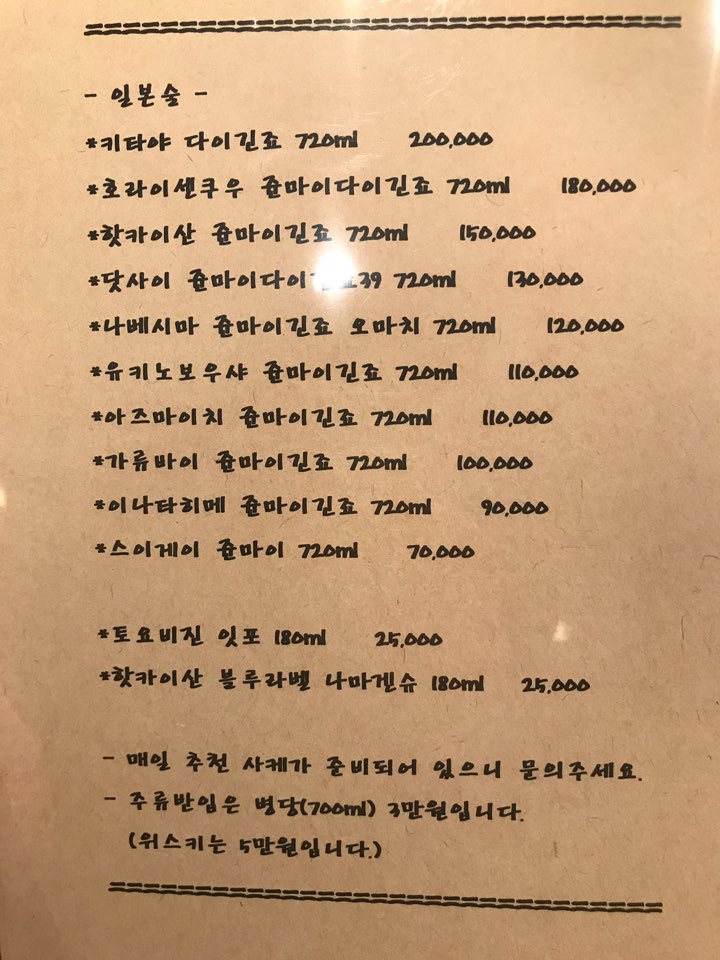 - 일본술 -
*키타야 다이긴죠 720ml 200,000
*호라이센쿠우 쥰마이다이긴죠 720ml 180,000
*핫카이산 쥰마이긴죠 720ml 150,000
*닷사이 쥰마이다이긴죠39 720ml 130,000
*나베시마 쥰마이긴죠 오마치 720ml 120,000
*유키노보우샤 쥰마이긴죠 720ml 110,000
*아즈마이치 쥰마이긴죠 720ml 110,000
*가류바이 쥰마이긴죠 720ml 100,000
*이나타히메 쥰마이긴죠 720ml 90,000
*스이게이 쥰마이 720ml 70,000
*토요비진 잇포 180ml 25,000
*핫카이산 블루라벨 나마겐슈 180ml 25,000
- 매일 추천 사케가 준비되어 있으니 문의주세요.
- 주류반입은 병당(700ml) 3만원입니다.
(위스키는 5만원입니다.)